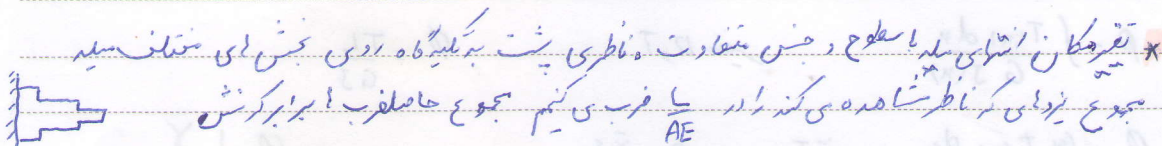 * تغییر مکان انتهای میله با سطوح و جنس متفاوت، ناظری پشت به تکیه گاه روی بخش های مختلف میله
مجموع نیروهای که ناظر مشاهده می کند را در L/AE ضرب می کنیم مجموع حاصلضرب ها برابر کرنش